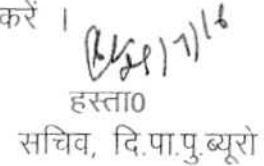 करें ।
हस्ता0
सचिव, दि.पा.पु.ब्यूरो